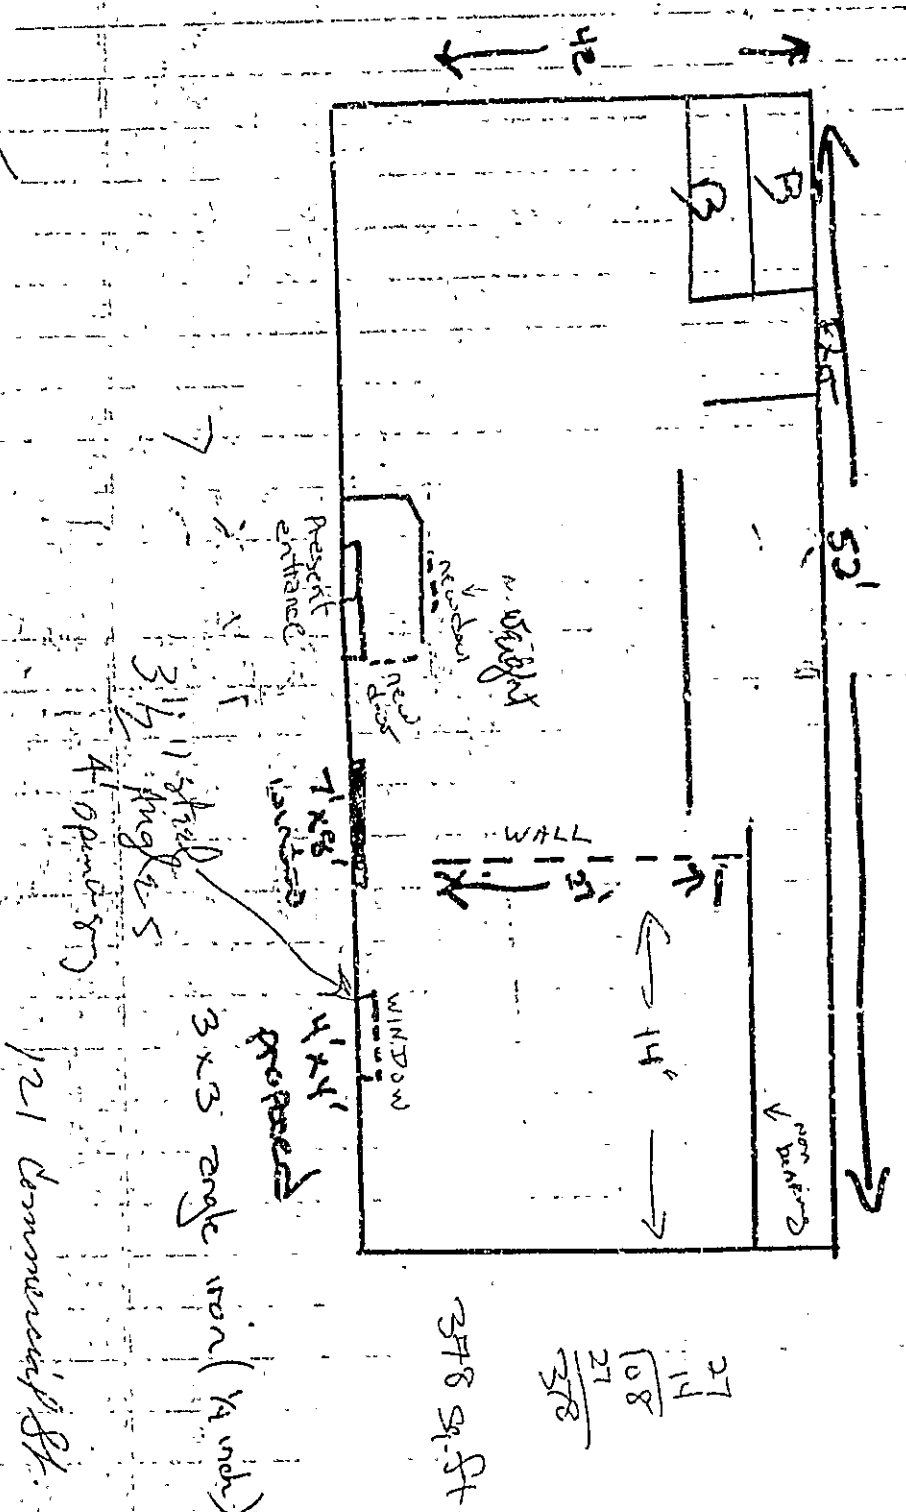 42
B
B
EXG
52'
present
entrance
new door
new
door
7' x 8'
window
WALL
27'
14"
non
bearing
WINDOW
4' x 4'
proposed
3 1/2" steel
Angles
4' opening
3 x 3 angle iron (1/4 inch)
27
14
108
27
378
378 Sq. ft
121 Commercial St.